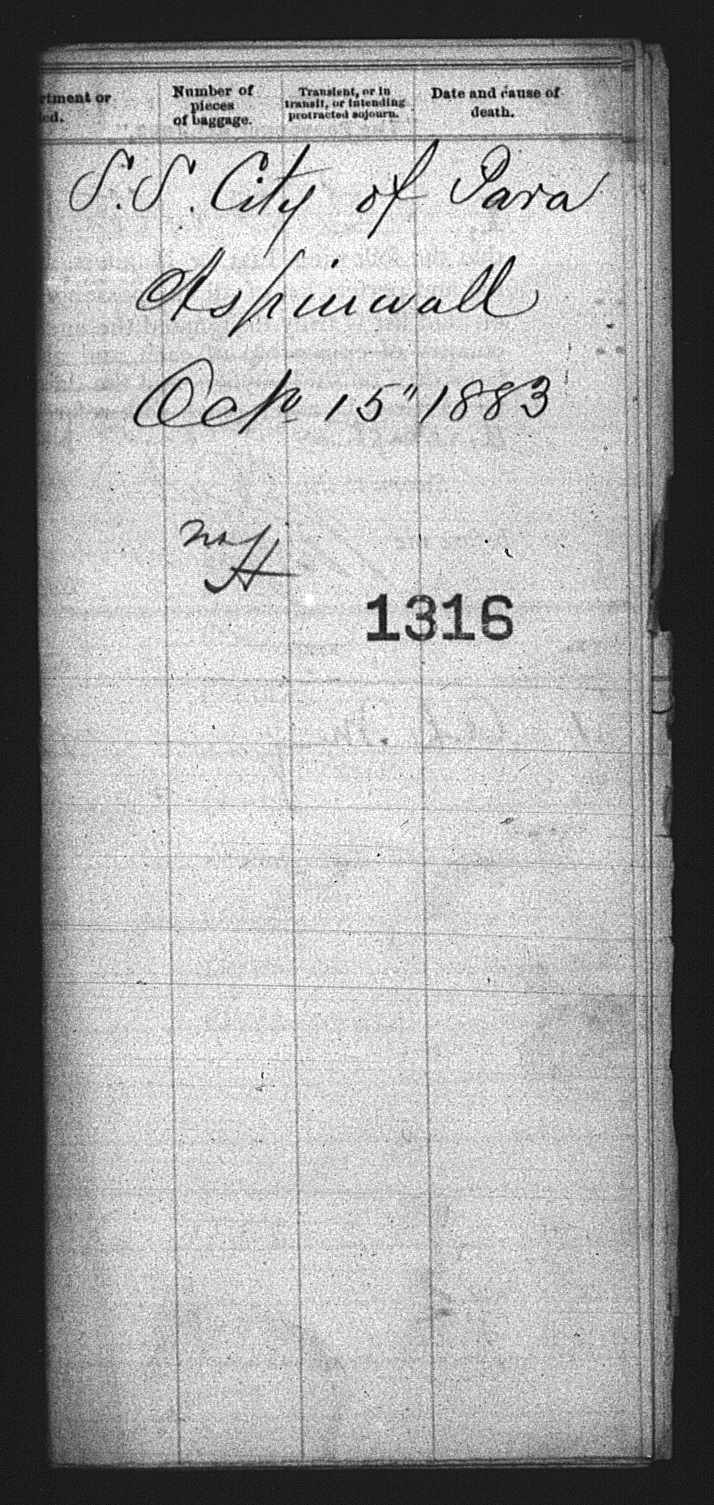 rtment or
ed.
Number of
pieces
of baggage.
Transient, or in
transit, or intending
protracted sojourn.
Date and cause of
death.
S.S. City of Para
Aspinwall
Oct 15" 1883
H
1316